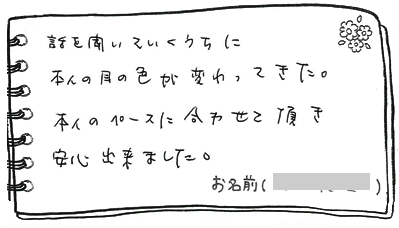 話を聞いていくうちに
本人の目の色が変わってきた。
本人のペースに合わせて頂き
安心出来ました。
お名前( )